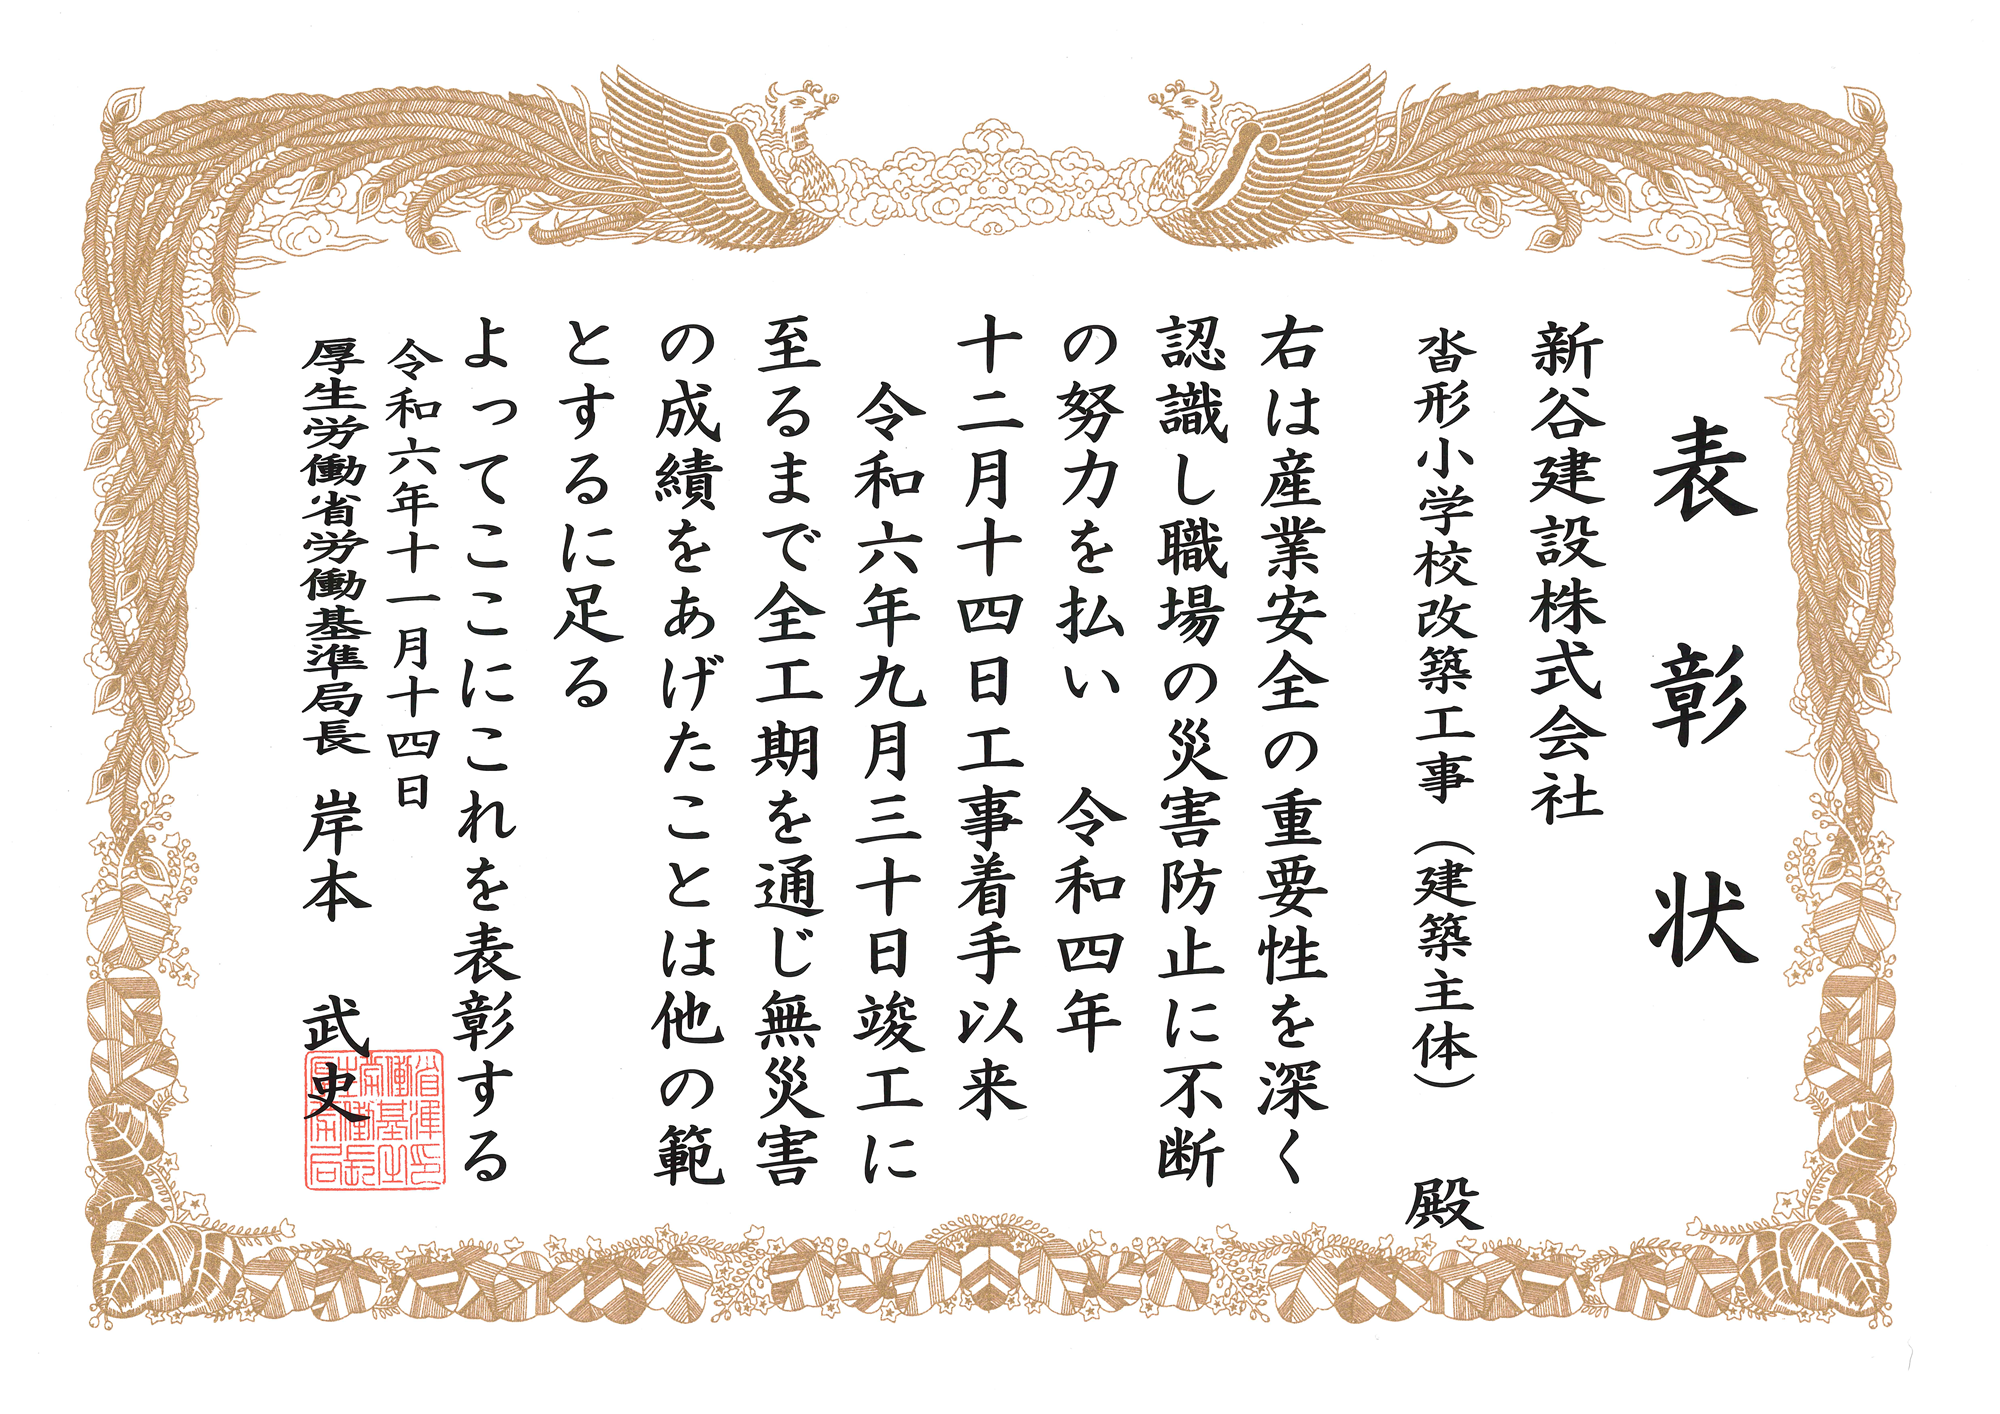 表彰状
新谷建設株式会社
沓形小学校改築工事（建築主体）　殿
右は産業安全の重要性を深く
認識し職場の災害防止に不断
の努力を払い　令和四年
十二月十四日工事着手以来
令和六年九月三十日竣工に
至るまで全工期を通じ無災害
の成績をあげたことは他の範
とするに足る
よってここにこれを表彰する
令和六年十一月十四日
厚生労働省労働基準局長　岸本　武史